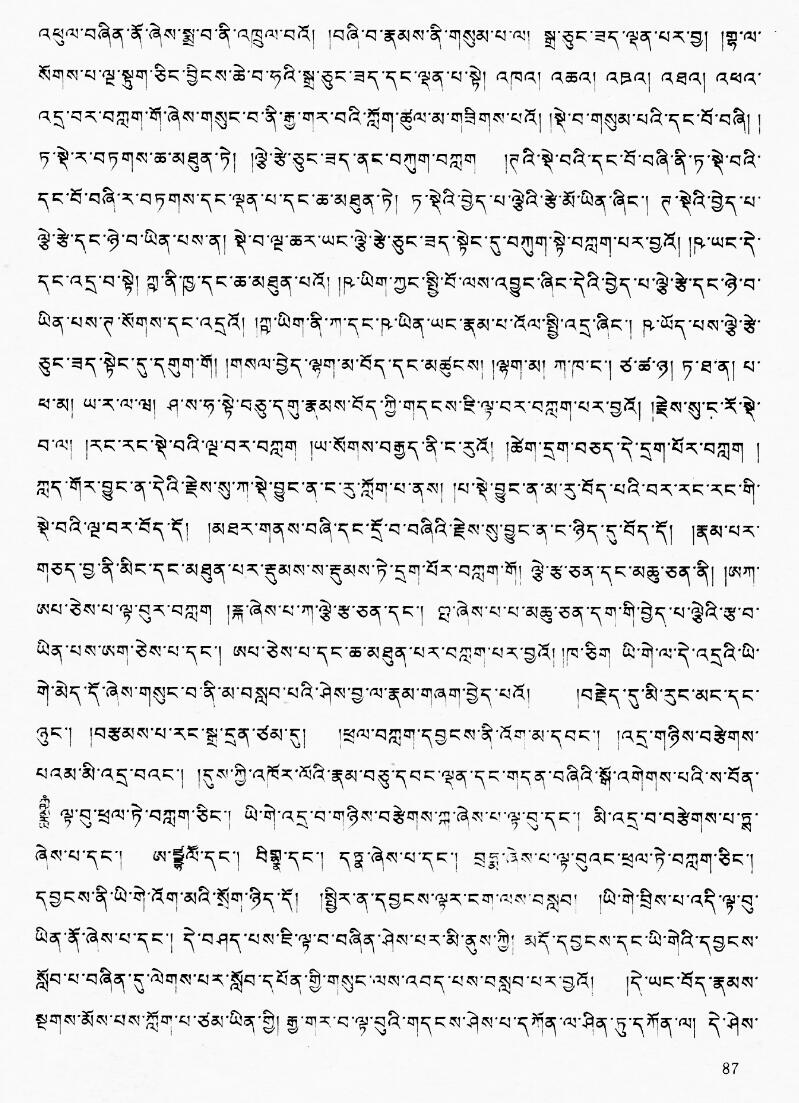 འཕུལ་བཞིན་ནོ་ཞེས་སྨྲ་བ་ནི་འཁྲུལ་བའོ། །བཞི་བ་རྣམས་ནི་གསུམ་པ་ལ། སྒྲ་ཅུང་ཟད་ལྡན་པར་བྱ། །གྷ་ལ་
སོགས་པ་ལྔ་སྟུག་ཅིང་བྱིངས་ཆེ་བ་ཧའི་སྒྲ་ཅུང་ཟད་དང་ལྡན་པ་སྟེ། འཁའ། འཆའ། འཋའ། འཐའ། འཕའ་
འདྲ་བར་བཀླག་གོ་ཞེས་གསུང་བ་ནི་རྒྱ་གར་བའི་ཀློག་ཚུལ་མ་གཟིགས་པའོ། །སྡེ་བ་གསུམ་པའི་དང་པོ་བཞི། །
ཏ་སྡེ་ར་བཏགས་ཆ་མཐུན་ཏེ། །ལྕེ་རྩེ་ཅུང་ཟད་ནང་བཀུག་བཀླག །ཊའི་སྡེ་བའི་དང་པོ་བཞི་ནི་ཏ་སྡེ་བའི་
དང་པོ་བཞི་ར་བཏགས་དང་ལྡན་པ་དང་ཆ་མཐུན་ཏེ། ཏ་སྡེའི་བྱེད་པ་ལྕེའི་རྩེ་མོ་ཡིན་ཞིང་། ཊ་སྡེའི་བྱེད་པ་
ལྕེ་རྩེ་དང་ཉེ་བ་ཡིན་པས་ན། སྡེ་བ་ལྔ་ཆར་ཡང་ལྕེ་རྩེ་ཅུང་ཟད་སྟེང་དུ་བཀུག་སྟེ་བཀླག་པར་བྱའོ། །ཥ་ཡང་དེ་
དང་འདྲ་བ་སྟེ། ཀྵ་ནི་ཁྱ་དང་ཆ་མཐུན་པའོ། །ཥ་ཡིག་ཀྱང་སྤྱི་བོ་ལས་འབྱུང་ཞིང་དེའི་བྱེད་པ་ལྕེ་རྩེ་དང་ཉེ་བ་
ཡིན་པས་ཊ་སོགས་དང་འདྲའོ། །ཀྵ་ཡིག་ནི་ཀ་དང་ཥ་ཡིན་ཡང་རྣམ་པ་འོལ་སྤྱི་འདྲ་ཞིང་། ཥ་ཡོད་པས་ལྕེ་རྩེ་
ཅུང་ཟད་སྟེང་དུ་དགུག་གོ། །གསལ་བྱེད་ལྷག་མ་བོད་དང་མཚུངས། །ལྷག་མ། ཀ་ཁ་ང་། ཙ་ཚ་ཉ། ཏ་ཐ་ན། པ་
ཕ་མ། ཡ་ར་ལ་ཝ། ཤ་ས་ཧ་སྟེ་བཅུ་དགུ་རྣམས་བོད་ཀྱི་གདངས་ཇི་ལྟ་བར་བཀླག་པར་བྱའོ། །རྗེས་སུ་ང་རོ་སྡེ་
བ་ལ། །རང་རང་སྡེ་བའི་ལྔ་བར་བཀླག །ཡ་སོགས་བརྒྱད་ནི་ང་རུའོ། །ཚེག་དྲག་བཅད་དེ་དྲག་པོར་བཀླག །
ཀླད་ཀོར་བྱུང་ན་དེའི་རྗེས་སུ་ཀ་སྡེ་བྱུང་ན་ང་རུ་ཀློག་པ་ནས། །པ་སྡེ་བྱུང་ན་མ་རུ་བོད་པའི་བར་རང་རང་གི་
སྡེ་བའི་ལྔ་བར་བོད་དོ། །མཐར་གནས་བཞི་དང་དྲོ་བ་བཞིའི་རྗེས་སུ་བྱུང་ན་ང་ཉིད་དུ་བོད་དོ། །རྣམ་པར་
གཅད་བྱ་ནི་མིང་དང་མཐུན་པར་རྡུམས་ས་རྡུམས་ཏེ་དྲག་པོར་བཀླག་གོ། ལྕེ་རྩ་ཅན་དང་མཆུ་ཅན་ནི། །ཨཀ་
ཨཔ་ཅེས་པ་ལྟ་བུར་བཀླག །ཞེས་པ་ཀ་ལྕེ་རྩ་ཅན་དང་། ཞེས་པ་པ་མཆུ་ཅན་དག་གི་བྱེད་པ་ལྕེའི་རྩ་བ་
ཡིན་པས་ཨག་ཅེས་པ་དང་། ཨཔ་ཅེས་པ་དང་ཆ་མཐུན་པར་བཀླག་པར་བྱའོ། །ཁ་ཅིག ཡི་གེ་ལ་དེ་འདྲའི་ཡི་
གེ་མེད་དོ་ཞེས་གསུང་བ་ནི་མ་བསླབ་པའི་ཤེས་བྱ་ལ་རྣམ་གཞག་བྱེད་པའོ། །བརྗེད་དུ་མི་རུང་མང་དང་
ཉུང་། །བརྩམས་པ་རང་སྒྲ་དྲན་ཙམ་དུ། །ཕྲལ་བཀླག་དབྱངས་ནི་འོག་མ་དབང་། །འདྲ་གཉིས་བརྩེགས་
པའམ་མི་འདྲ་བའང་། །དུས་ཀྱི་འཁོར་ལོའི་རྣམ་བཅུ་དབང་ལྡན་དང་གདན་བཞིའི་སྒོ་འགེགས་པའི་ས་བོན་
ལྟ་བུ་ཕྲལ་ཏེ་བཀླག་ཅིང་། ཡི་གེ་འདྲ་བ་གཉིས་བརྩེགས་ཀྐ་ཞེས་པ་ལྟ་བུ་དང་། མི་འདྲ་བ་བརྩེགས་པ་
ཞེས་པ་དང་། དང་། དང་། དཏྟ་ཞེས་པ་དང་། ཞེས་པ་ལྟ་བུའང་ཕྲལ་ཏེ་བཀླག་ཅིང་།
དབྱངས་ནི་ཡི་གེ་འོག་མའི་སྲོག་ཉིད་དོ། །སྤྱིར་ན་དབྱངས་ལྟར་ངག་ལས་བསླབ། །ཡི་གེ་བྲིས་པ་འདི་ལྟ་བུ་
ཡིན་ནོ་ཞེས་པ་དང་། དེ་བཤད་པས་ཇི་ལྟ་བ་བཞིན་ཤེས་པར་མི་ནུས་ཀྱི། མདོ་དབྱངས་དང་ཡི་གེའི་དབྱངས་
སློབ་པ་བཞིན་དུ་ལེགས་པར་སློབ་དཔོན་གྱི་གསུང་ལས་འབད་པས་བསླབ་པར་བྱའོ། །དེ་ཡང་བོད་རྣམས་
སྔགས་མོས་པས་ཀློག་པ་ཙམ་ཡིན་གྱི། རྒྱ་གར་བ་ལྟ་བུའི་གདངས་ཤེས་པ་དཀོན་ལ་ཤིན་ཏུ་དཀོན་ལ། དེ་ཤེས་
87